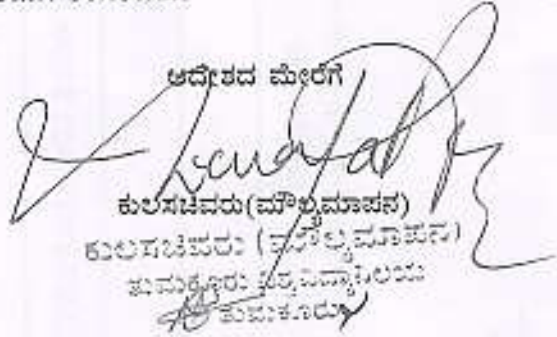 ಆದೇಶದ ಮೇರೆಗೆ
ಕುಲಸಚಿವರು(ಮೌಲ್ಯಮಾಪನ)
ಕುಲಸಚಿವರು (ಮೌಲ್ಯಮಾಪನ)
ತುಮಕೂರು ವಿಶ್ವವಿದ್ಯಾನಿಲಯ
ತುಮಕೂರು